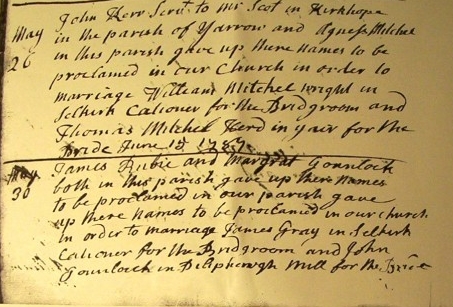 John Kerr Servt. to Mr Scot in Kirkhope
May 26 in the parish of Yarrow and Agness Mitchel
in this parish gave up there names to be
proclaimed in our Church in order to
marriage William Mitchel wright in
Selkirk Cationer for the Bridgroom and
Thomas Mitchel Herd in yair for the
Bride June 15 1787
May 30 James Dubie and Margrat Gounlock
both in this parish gave up there Names
to be proclaimed in our parish gave
up there Names to be proclaimed in our church
in order to marriage James Gray in Selkirk
Cationer for the Bridgroom and John
Gounlock in Mill for the Bride